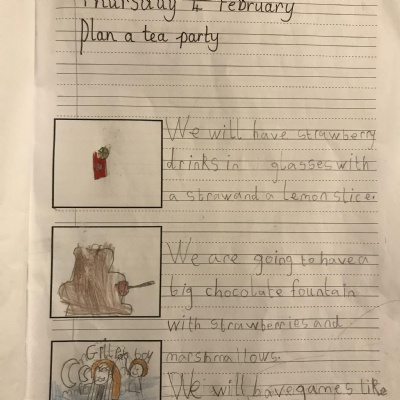 Thursday 4 February
Plan a tea party
We will have strawberry
drinks in glasses with
a straw and a lemon slice.
We are going to have a
big chocolate fountain
with strawberries and
marshmallows.
We will have games like